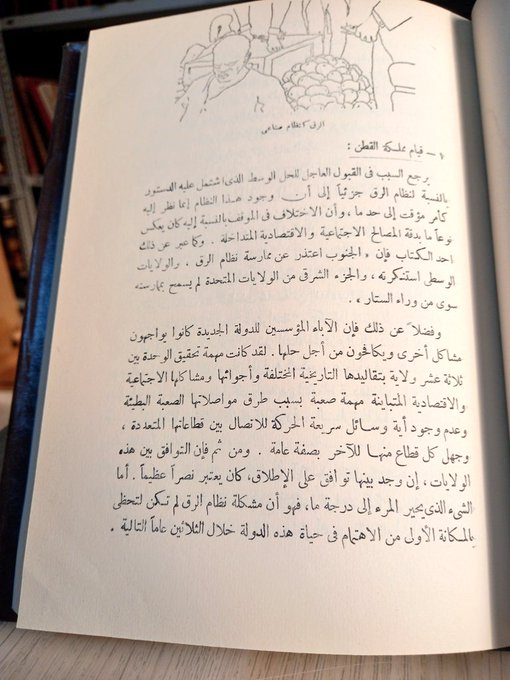 الرق كنظام صناعى
١ - قيام مملكة القطن :
يرجع السبب فى القبول العاجل للحل الوسط الذى اشتمل عليه الدستور
بالنسبة لنظام الرق جزئياً إلى أن وجود هذا النظام إنما نظر إليه
كأمر مؤقت إلى حد ما ، وأن الاختلاف فى الموقف بالنسبة إليه كان يعكس
نوعاً ما بدقة المصالح الاجتماعية والاقتصادية المتداخلة . وكما عبر عن ذلك
احد الكتاب فإن « الجنوب اعتذر عن ممارسة نظام الرق . والولايات
الوسطى استنكرته ، والجزء الشرقى من الولايات المتحدة لم يسمح بممارسته
سوى من وراء الستار » .
وفضلاً عن ذلك فإن الآباء المؤسسين للدولة الجديدة كانوا يواجهون
مشاكل أخرى ويكافحون من أجل حلها . لقد كانت مهمة تحقيق الوحدة بين
ثلاثة عشر ولاية بتقاليدها التاريخية المختلفة وأجوائها ومشاكلها الاجتماعية
والاقتصادية المتباينة مهمة صعبة بسبب طرق مواصلاتها الصعبة البطيئة
وعدم وجود أية وسائل سريعة الحركة للاتصال بين قطاعاتها المتعددة ،
وجهل كل قطاع منها للآخر بصفة عامة . ومن ثم فإن التوافق بين هذه
الولايات ، إن وجد بينها توافق على الإطلاق، كان يعتبر نصراً عظيماً . أما
الشىء الذى يحير المرء إلى درجة ما، فهو أن مشكلة نظام الرق لم تكن لتحظى
بالمكانة الأولى من الاهتمام فى حياة هذه الدولة خلال الثلاثين عاماً التالية .